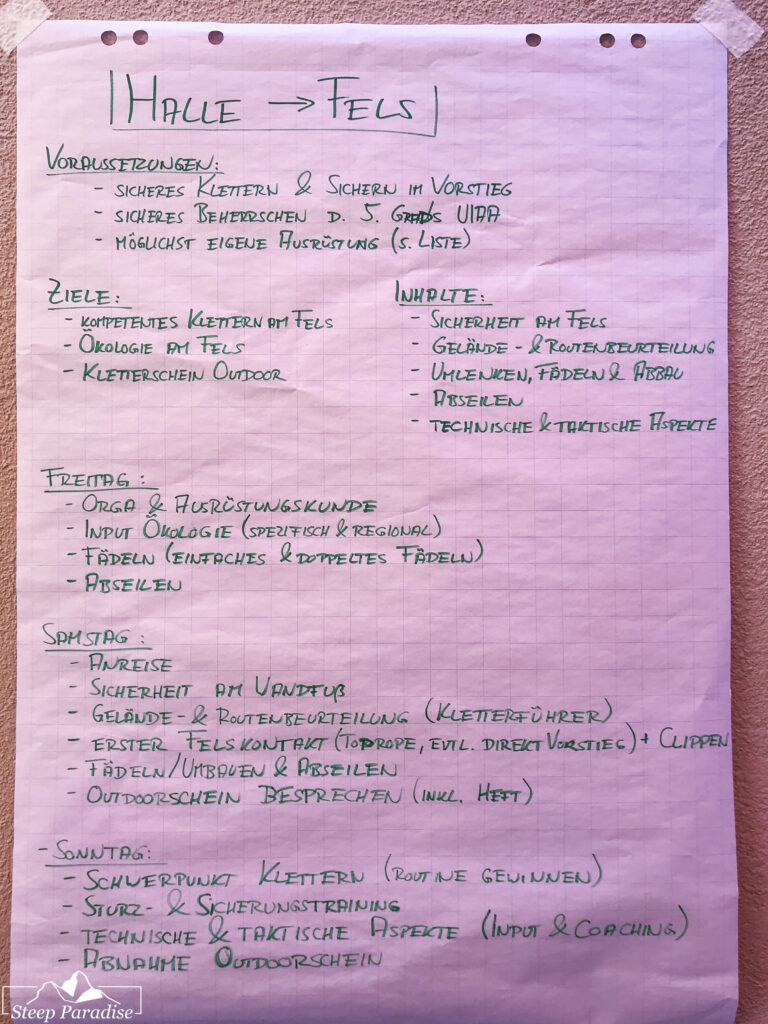 HALLE → FELS
VORAUSSETZUNGEN:
- SICHERES KLETTERN & SICHERN IM VORSTIEG
- SICHERES BEHERRSCHEN D. 5. GRADS UIAA
- MÖGLICHST EIGENE AUSRÜSTUNG (S. LISTE)
ZIELE:
- KOMPETENTES KLETTERN AM FELS
- ÖKOLOGIE AM FELS
- KLETTERSCHEIN OUTDOOR
INHALTE:
- SICHERHEIT AM FELS
- GELÄNDE- & ROUTENBEURTEILUNG
- UMLENKEN, FÄDELN & ABBAU
- ABSEILEN
- TECHNISCHE & TAKTISCHE ASPEKTE
FREITAG:
- ORGA & AUSRÜSTUNGSKUNDE
- INPUT ÖKOLOGIE (SPEZIFISCH & REGIONAL)
- FÄDELN (EINFACHES & DOPPELTES FÄDELN)
- ABSEILEN
SAMSTAG:
- ANREISE
- SICHERHEIT AM WANDFUß
- GELÄNDE- & ROUTENBEURTEILUNG (KLETTERFÜHRER)
- ERSTER FELSKONTAKT (TOPROPE, EVTL. DIREKT VORSTIEG) + CLIPPEN
- FÄDELN/UMBAUEN & ABSEILEN
- OUTDOORSCHEIN BESPRECHEN (INKL. HEFT)
- SONNTAG:
- SCHWERPUNKT KLETTERN (ROUTINE GEWINNEN)
- STURZ- & SICHERUNGSTRAINING
- TECHNISCHE & TAKTISCHE ASPEKTE (INPUT & COACHING)
- ABNAHME OUTDOORSCHEIN
Steep Paradise